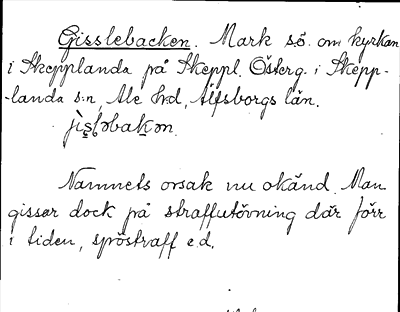 Gisslebacken. Mark s.ö. om kyrkan
i Skepplanda på Skeppl. Österg. i Skepp-
-landa s:n, Ale hd, Älfsborgs län.
Namnets orsak nu okänd. Man
gissar dock på straffutövning där förr
i tiden, spöstraff e.d.